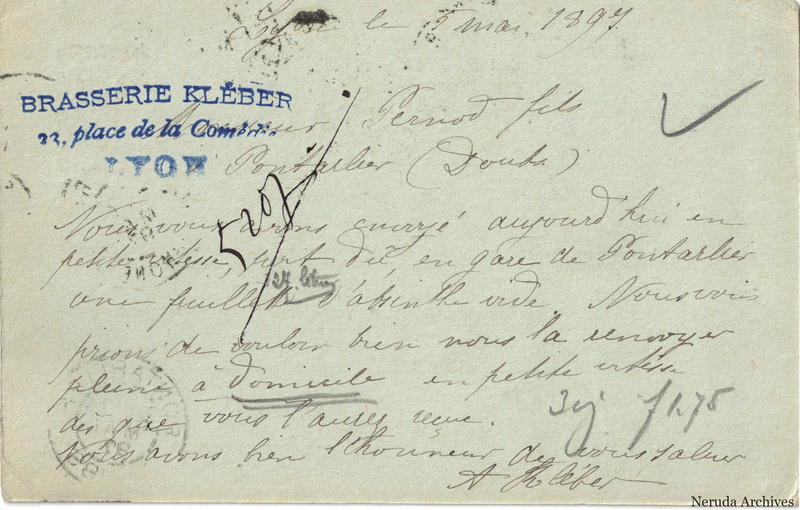 Lyon le 5 mai 1897
BRASSERIE KLÉBER
23, place de la Comédie
LYON
Monsieur Pernod fils
Pontarlier (Doubs)
5207
Nous vous avons envoyé aujourd'hui en
petite vitesse, port dû, en gare de Pontarlier
une feuillette d'absinthe vide. Nous vous
prions de vouloir bien nous la renvoyer
pleine à domicile en petite vitesse
dès que vous l'aurez reçue.
Nous avons bien l'honneur de vous saluer
A Kléber
f 1.75
Neruda Archives